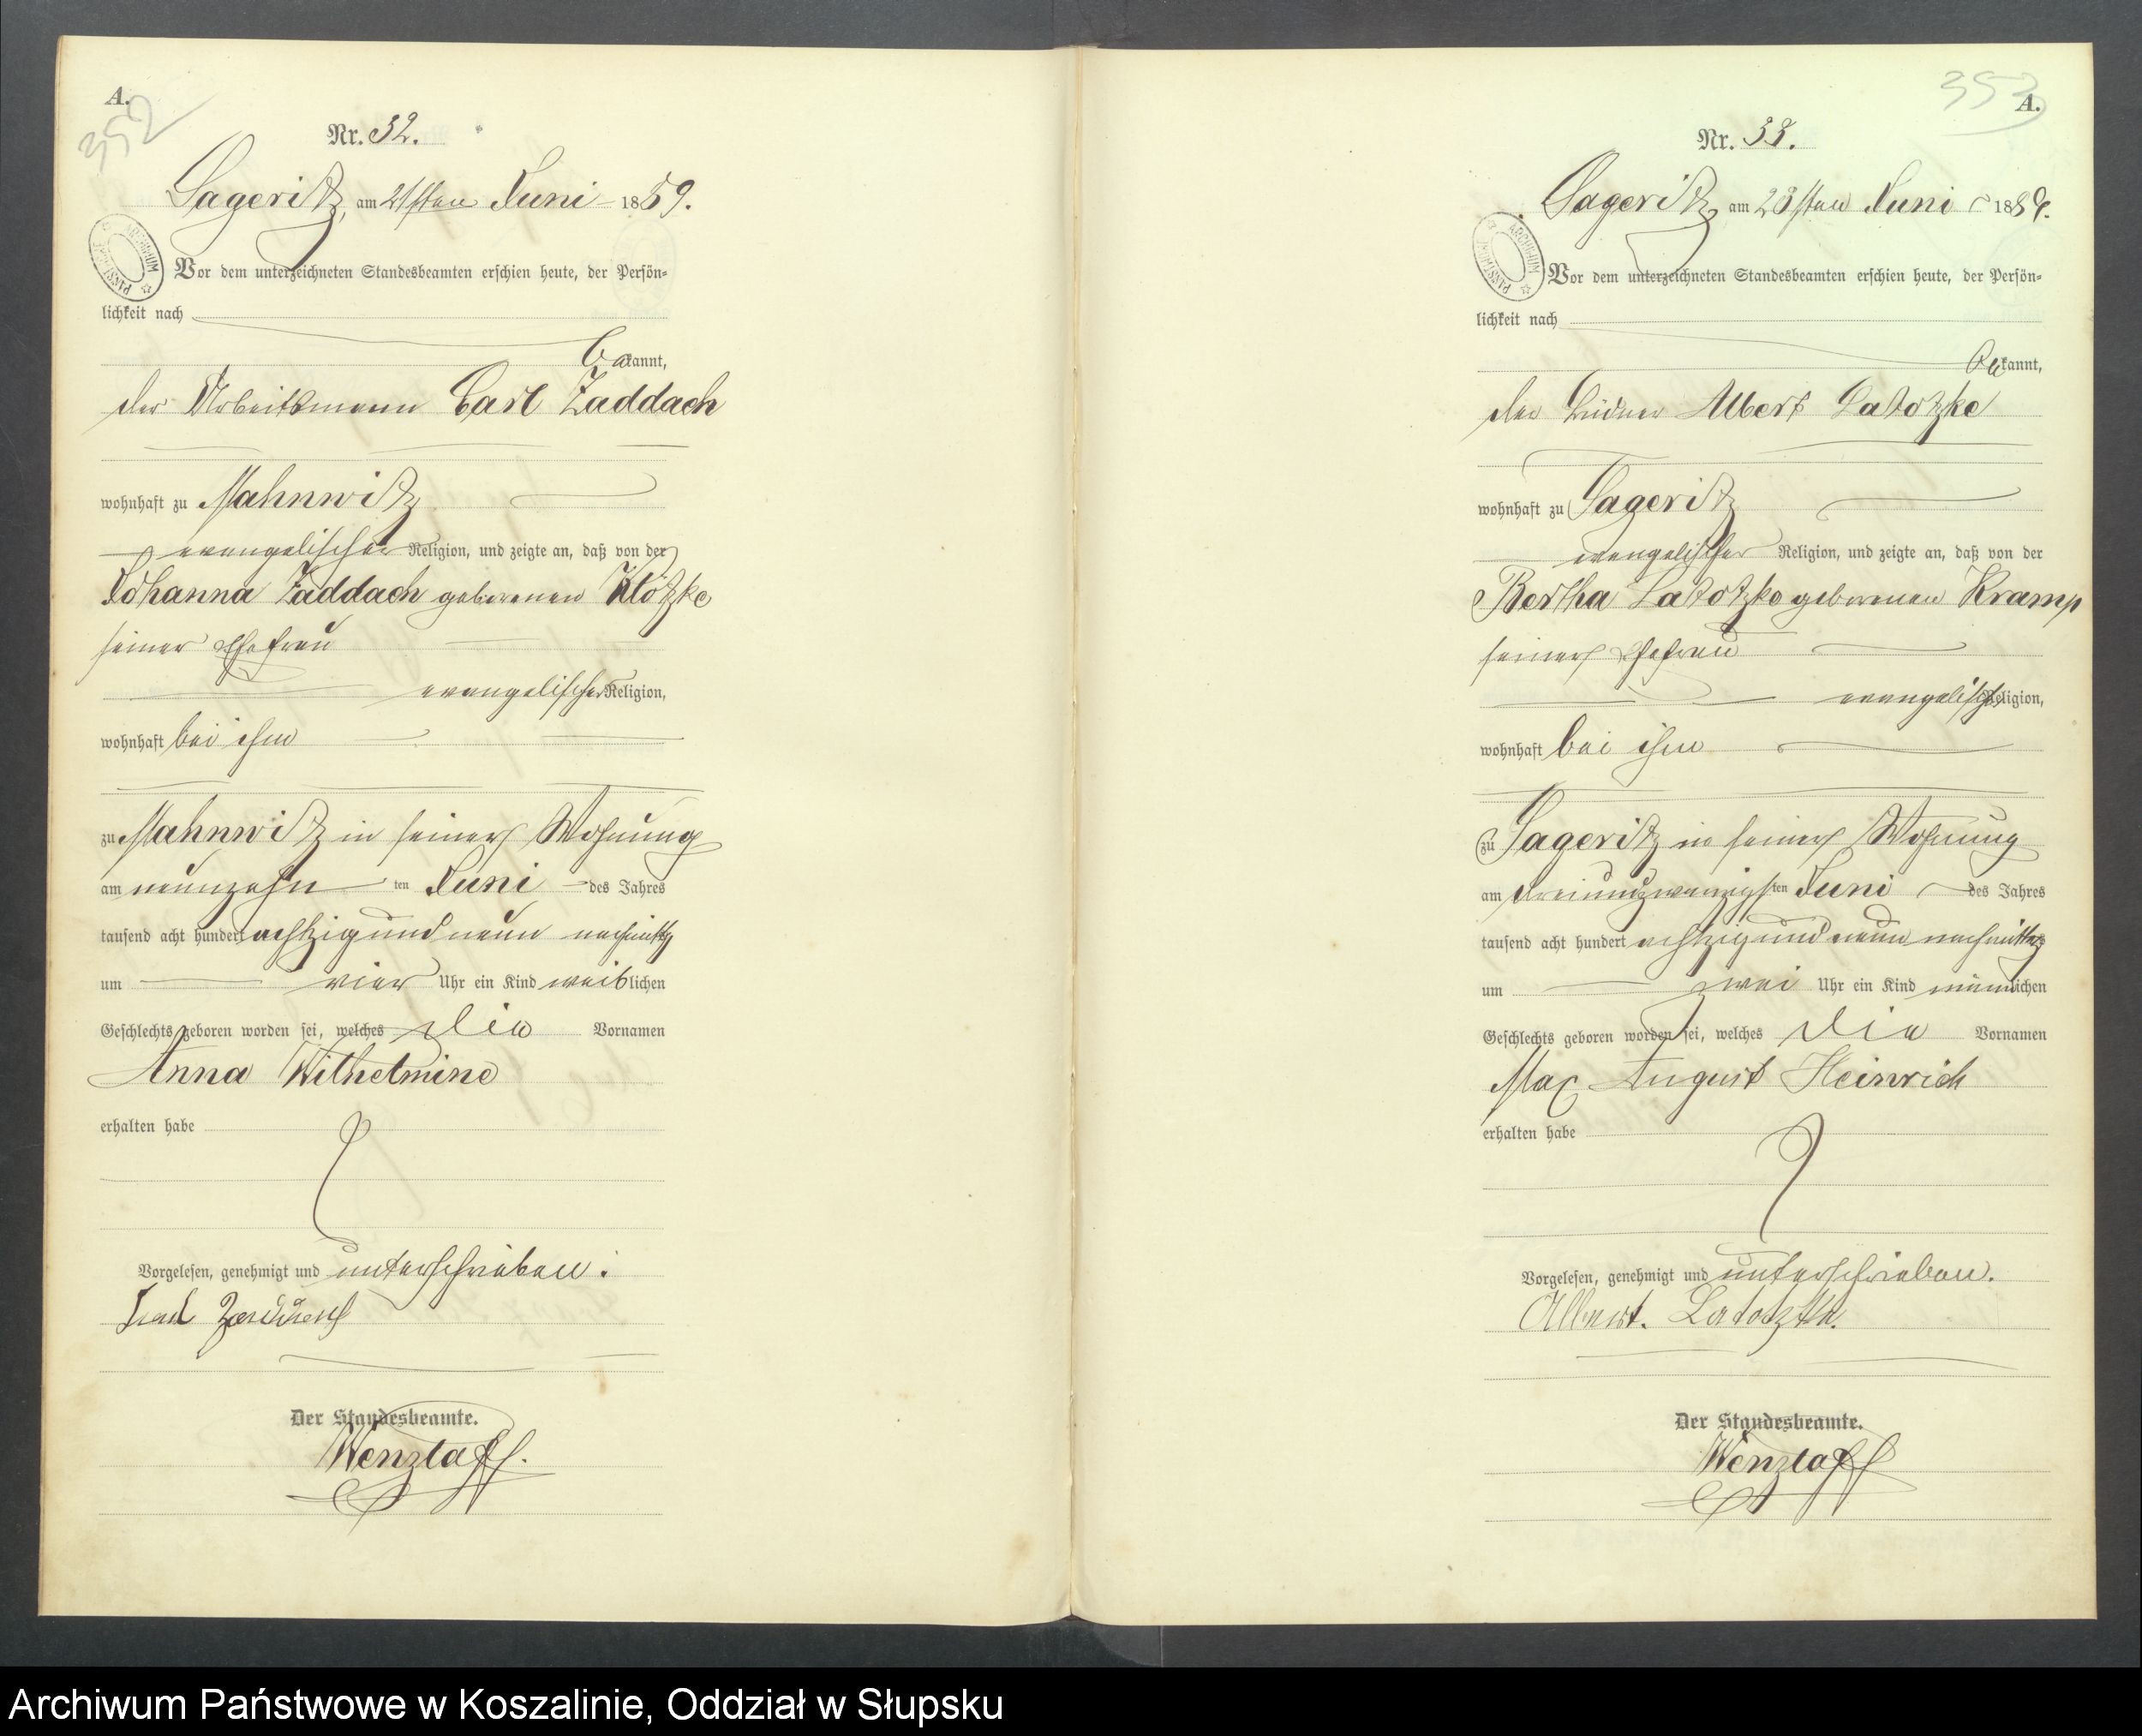 A.
352
Nr. 32.
Sageritz, am 21sten Juni 1889.
Vor dem unterzeichneten Standesbeamten erschien heute, der Persön-
lichkeit nach
bekannt,
der Arbeitsmann Carl Zaddach
wohnhaft zu Mahnwitz
evangelischer Religion, und zeigte an, daß von der
Johanna Zaddach geborenen Klötzke
seiner Ehefrau
evangelischer Religion,
wohnhaft bei ihm
zu Mahnwitz in seiner Wohnung
am neunzehn ten Juni des Jahres
tausend acht hundert achtzig und neun nachmittags
um vier Uhr ein Kind weiblichen
Geschlechts geboren worden sei, welches die Vornamen
Anna Wilhelmine
erhalten habe
Vorgelesen, genehmigt und unterschrieben.
Carl Zaddach
Der Standesbeamte.
Wenzlaff.
353
A.
Nr. 33.
Sageritz, am 28sten Juni 1889.
Vor dem unterzeichneten Standesbeamten erschien heute, der Persön-
lichkeit nach
bekannt,
der Büdner Albert Latotzke
wohnhaft zu Sageritz
evangelischer Religion, und zeigte an, daß von der
Bertha Latotzke geborenen Kramp
seiner Ehefrau
evangelischer Religion,
wohnhaft bei ihm
zu Sageritz in seiner Wohnung
am dreiundzwanzigsten Juni des Jahres
tausend acht hundert achtzig und neun nachmittags
um zwei Uhr ein Kind männlichen
Geschlechts geboren worden sei, welches die Vornamen
Max August Heinrich
erhalten habe
Vorgelesen, genehmigt und unterschrieben.
Albert. Latoszke.
Der Standesbeamte.
Wenzlaff
Archiwum Państwowe w Koszalinie, Oddział w Słupsku